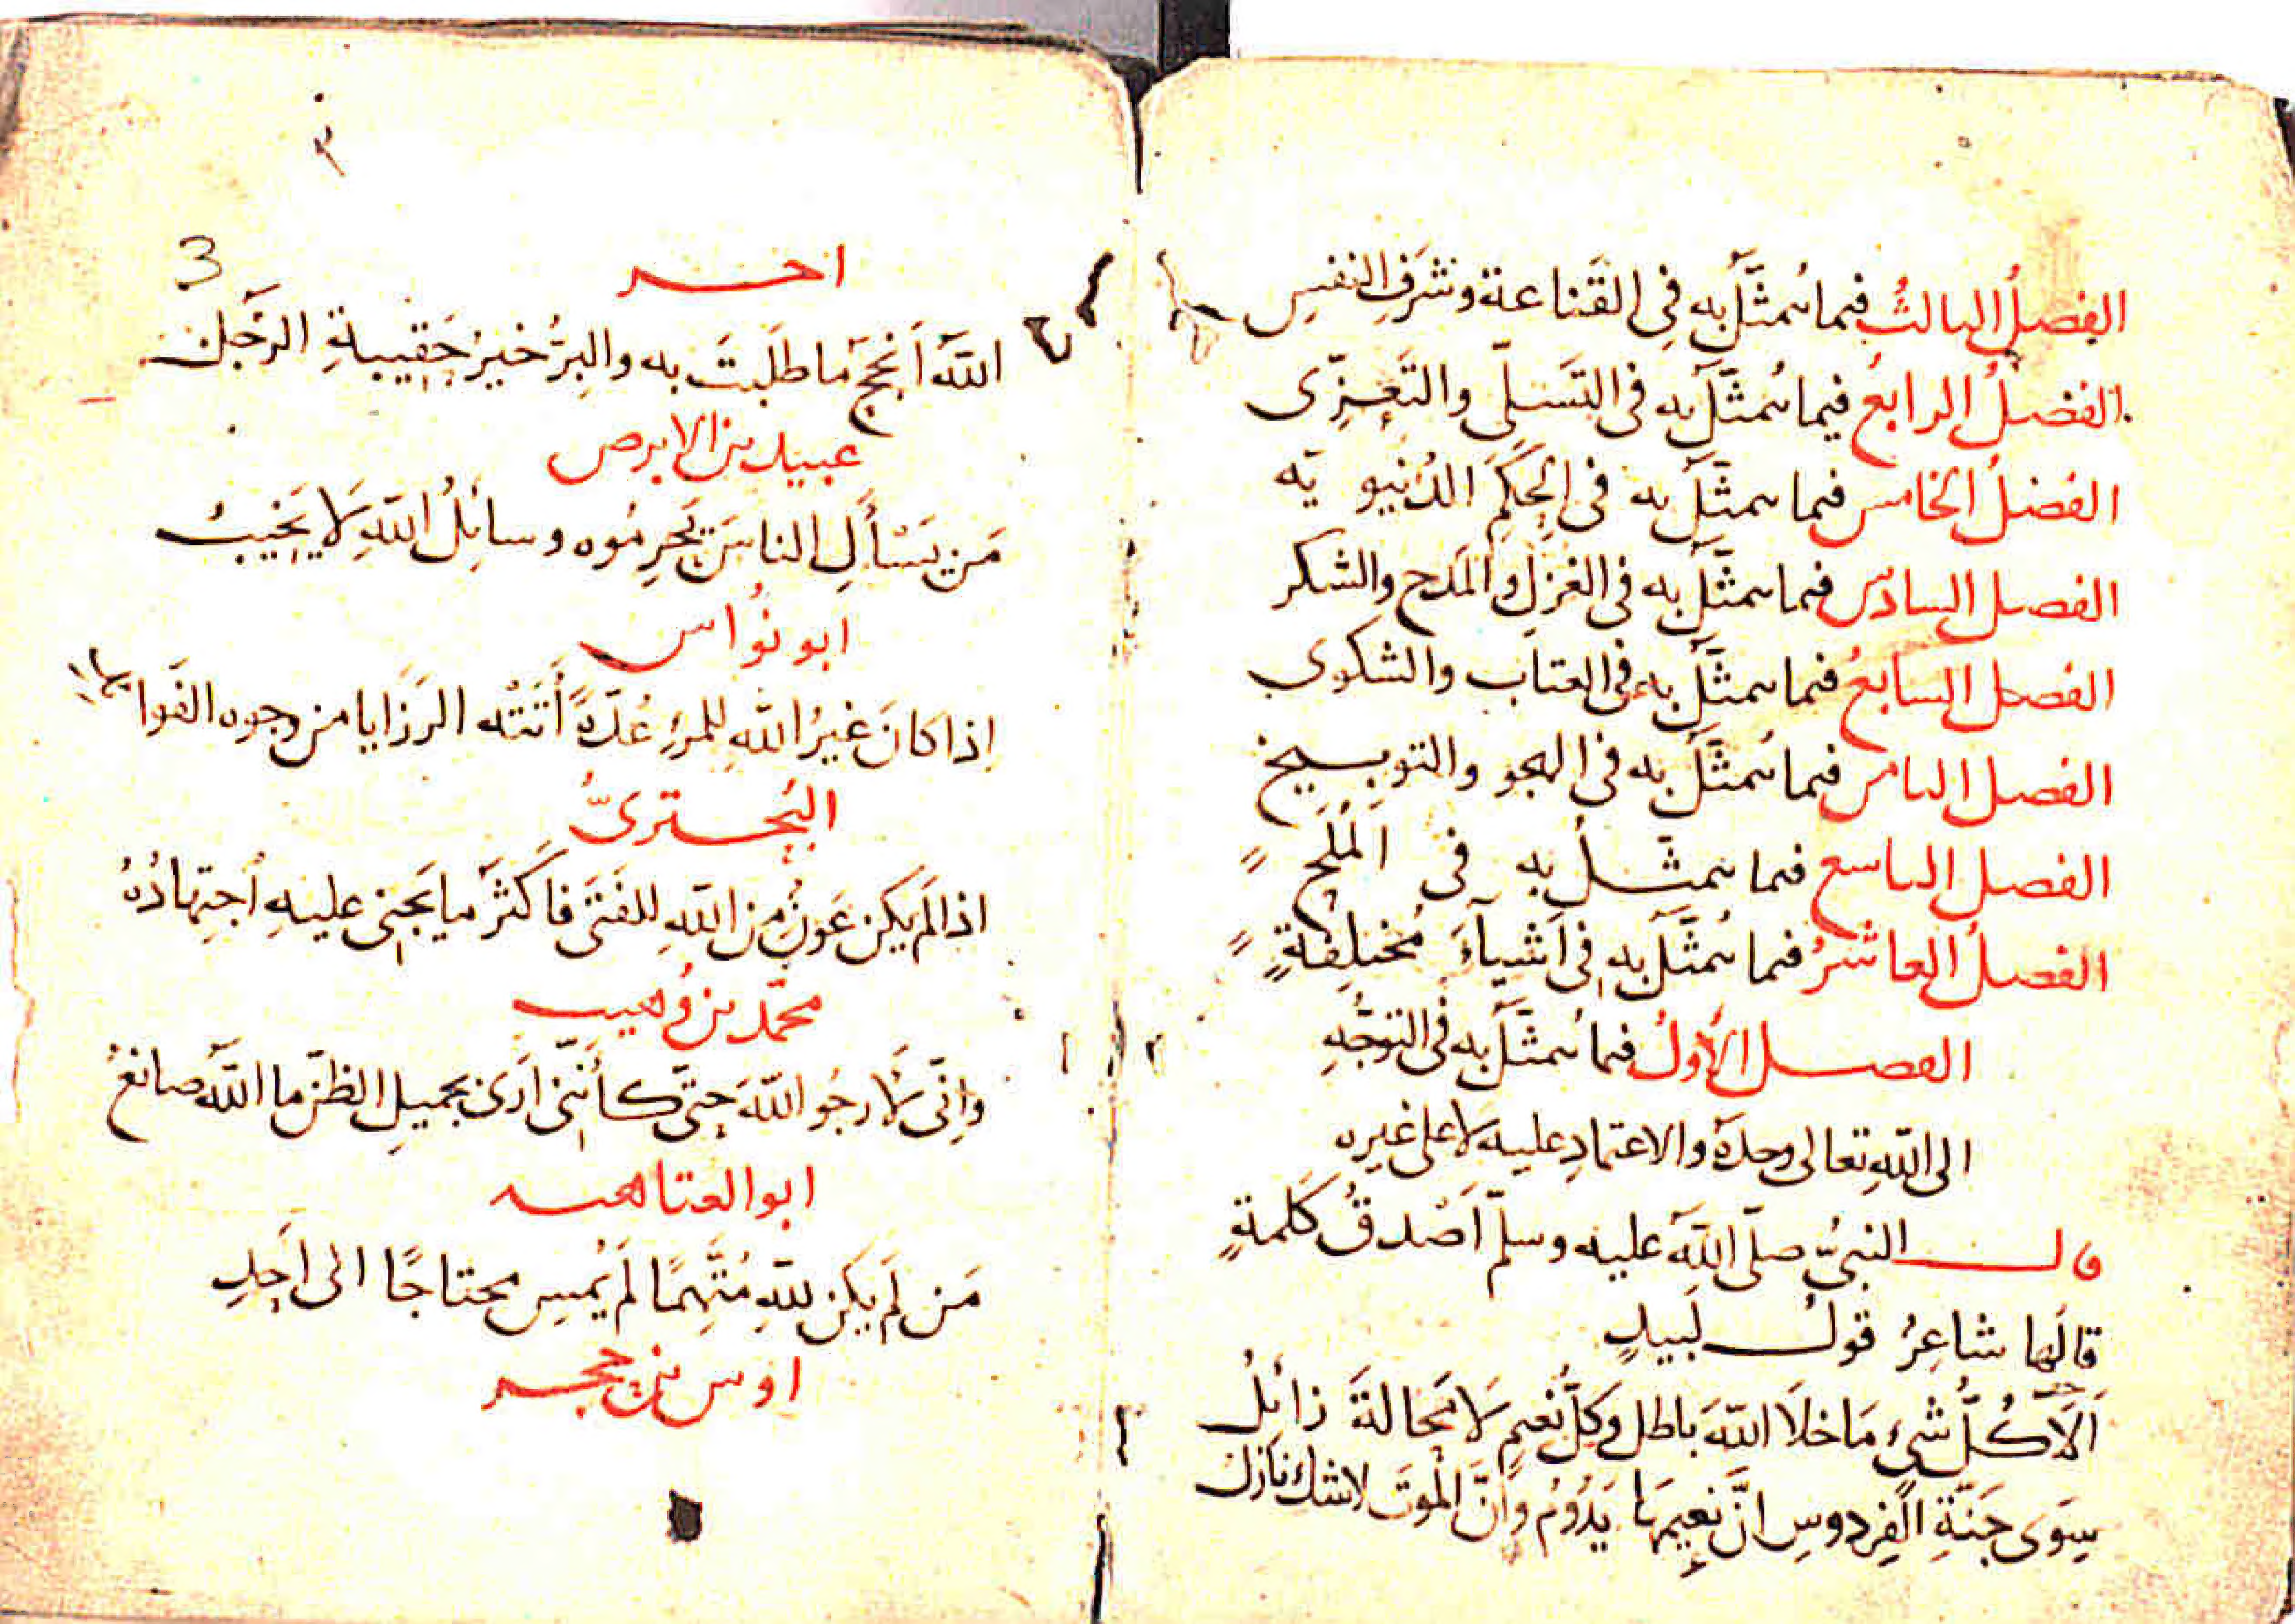 الفصلُ الثالثُ فيما يُتمثَّلُ به فِي القَناعة وشَرَفِ النفسِ
الفصلُ الرابعُ فيما يُتمثَّلُ به فى التسَلّى والتَعزِّى
الفصلُ الخامس فيما يتمثَّلُ به فى الحِكَمِ الدُنيويّه
الفصل السادس فيما يتمثَّلُ به فى الغزلِ والمَدح والشكر
الفصل السابعُ فيما يتمثَّلُ به فى العتاب والشكوى
الفصل الثامن فيما يُتمثَّلُ به فى الهجو والتوبيخ
الفصل التاسع فيما يتمثَّلُ به فى المُلَحِ
الفصلُ العاشرُ فيما يُتمثَّلُ به فى اَشيآءَ مُختلِفةٍ
الفصل الأولُ فيما يُتمثَّلُ به فى التوجُّهِ
الى اللهِ تعالى وحدَهُ والاعتمادِ عليه لا على غيرِه
قال النبىُّ صلّى اللهُ عليه وسلّم اَصْدقُ كَلمةٍ
قالَها شاعِرُ قولُ لَبيدٍ
اَلَا كُلُّ شىءٍ مَا خلَا اللهَ باطل وكلُّ نعيمٍ لَا مَحالةَ زائلُ
سِوَى جَنّةِ الفِردوسِ انَّ نعيمَهَا يَدُوُمُ وَاَنَّ الْموتَ لا شك نازل
٣
3
اخر
اللهُ اَنجحُ ما طلَبتَ به والبِرُّ خيرُ حَقيبةِ الرَّجُل
عبيد بن الابرص
مَن يَسْأَلِ الناسَ يَحرِمُوه وسائِلُ اللهِ لَا يَخيبُ
ابو نُواس
اِذا كانَ غيرُ اللهِ للمرءِ عُدّةً أَتَتْه الرَزَايا من وجوه الفَوائد
البُحترىُّ
اذا لَم يكن عَونٌ مِن اللهِ للفَتَى فاَكثرُ ما يَجنى عليهِ اُجتِهادُهُ
محمّد بن وُهيب
وَاِنّى لَاَرجُو اللهَ حتّى كأنّنى اَرَى بجميلِ الظنّ ما اللهُ صانعُ
ابو العتاهيه
مَن لَم يكن للهِ مُتَّهِمًا لَم يُمسِ محتاجًا الى اَحَدِ
اوس بن حجر